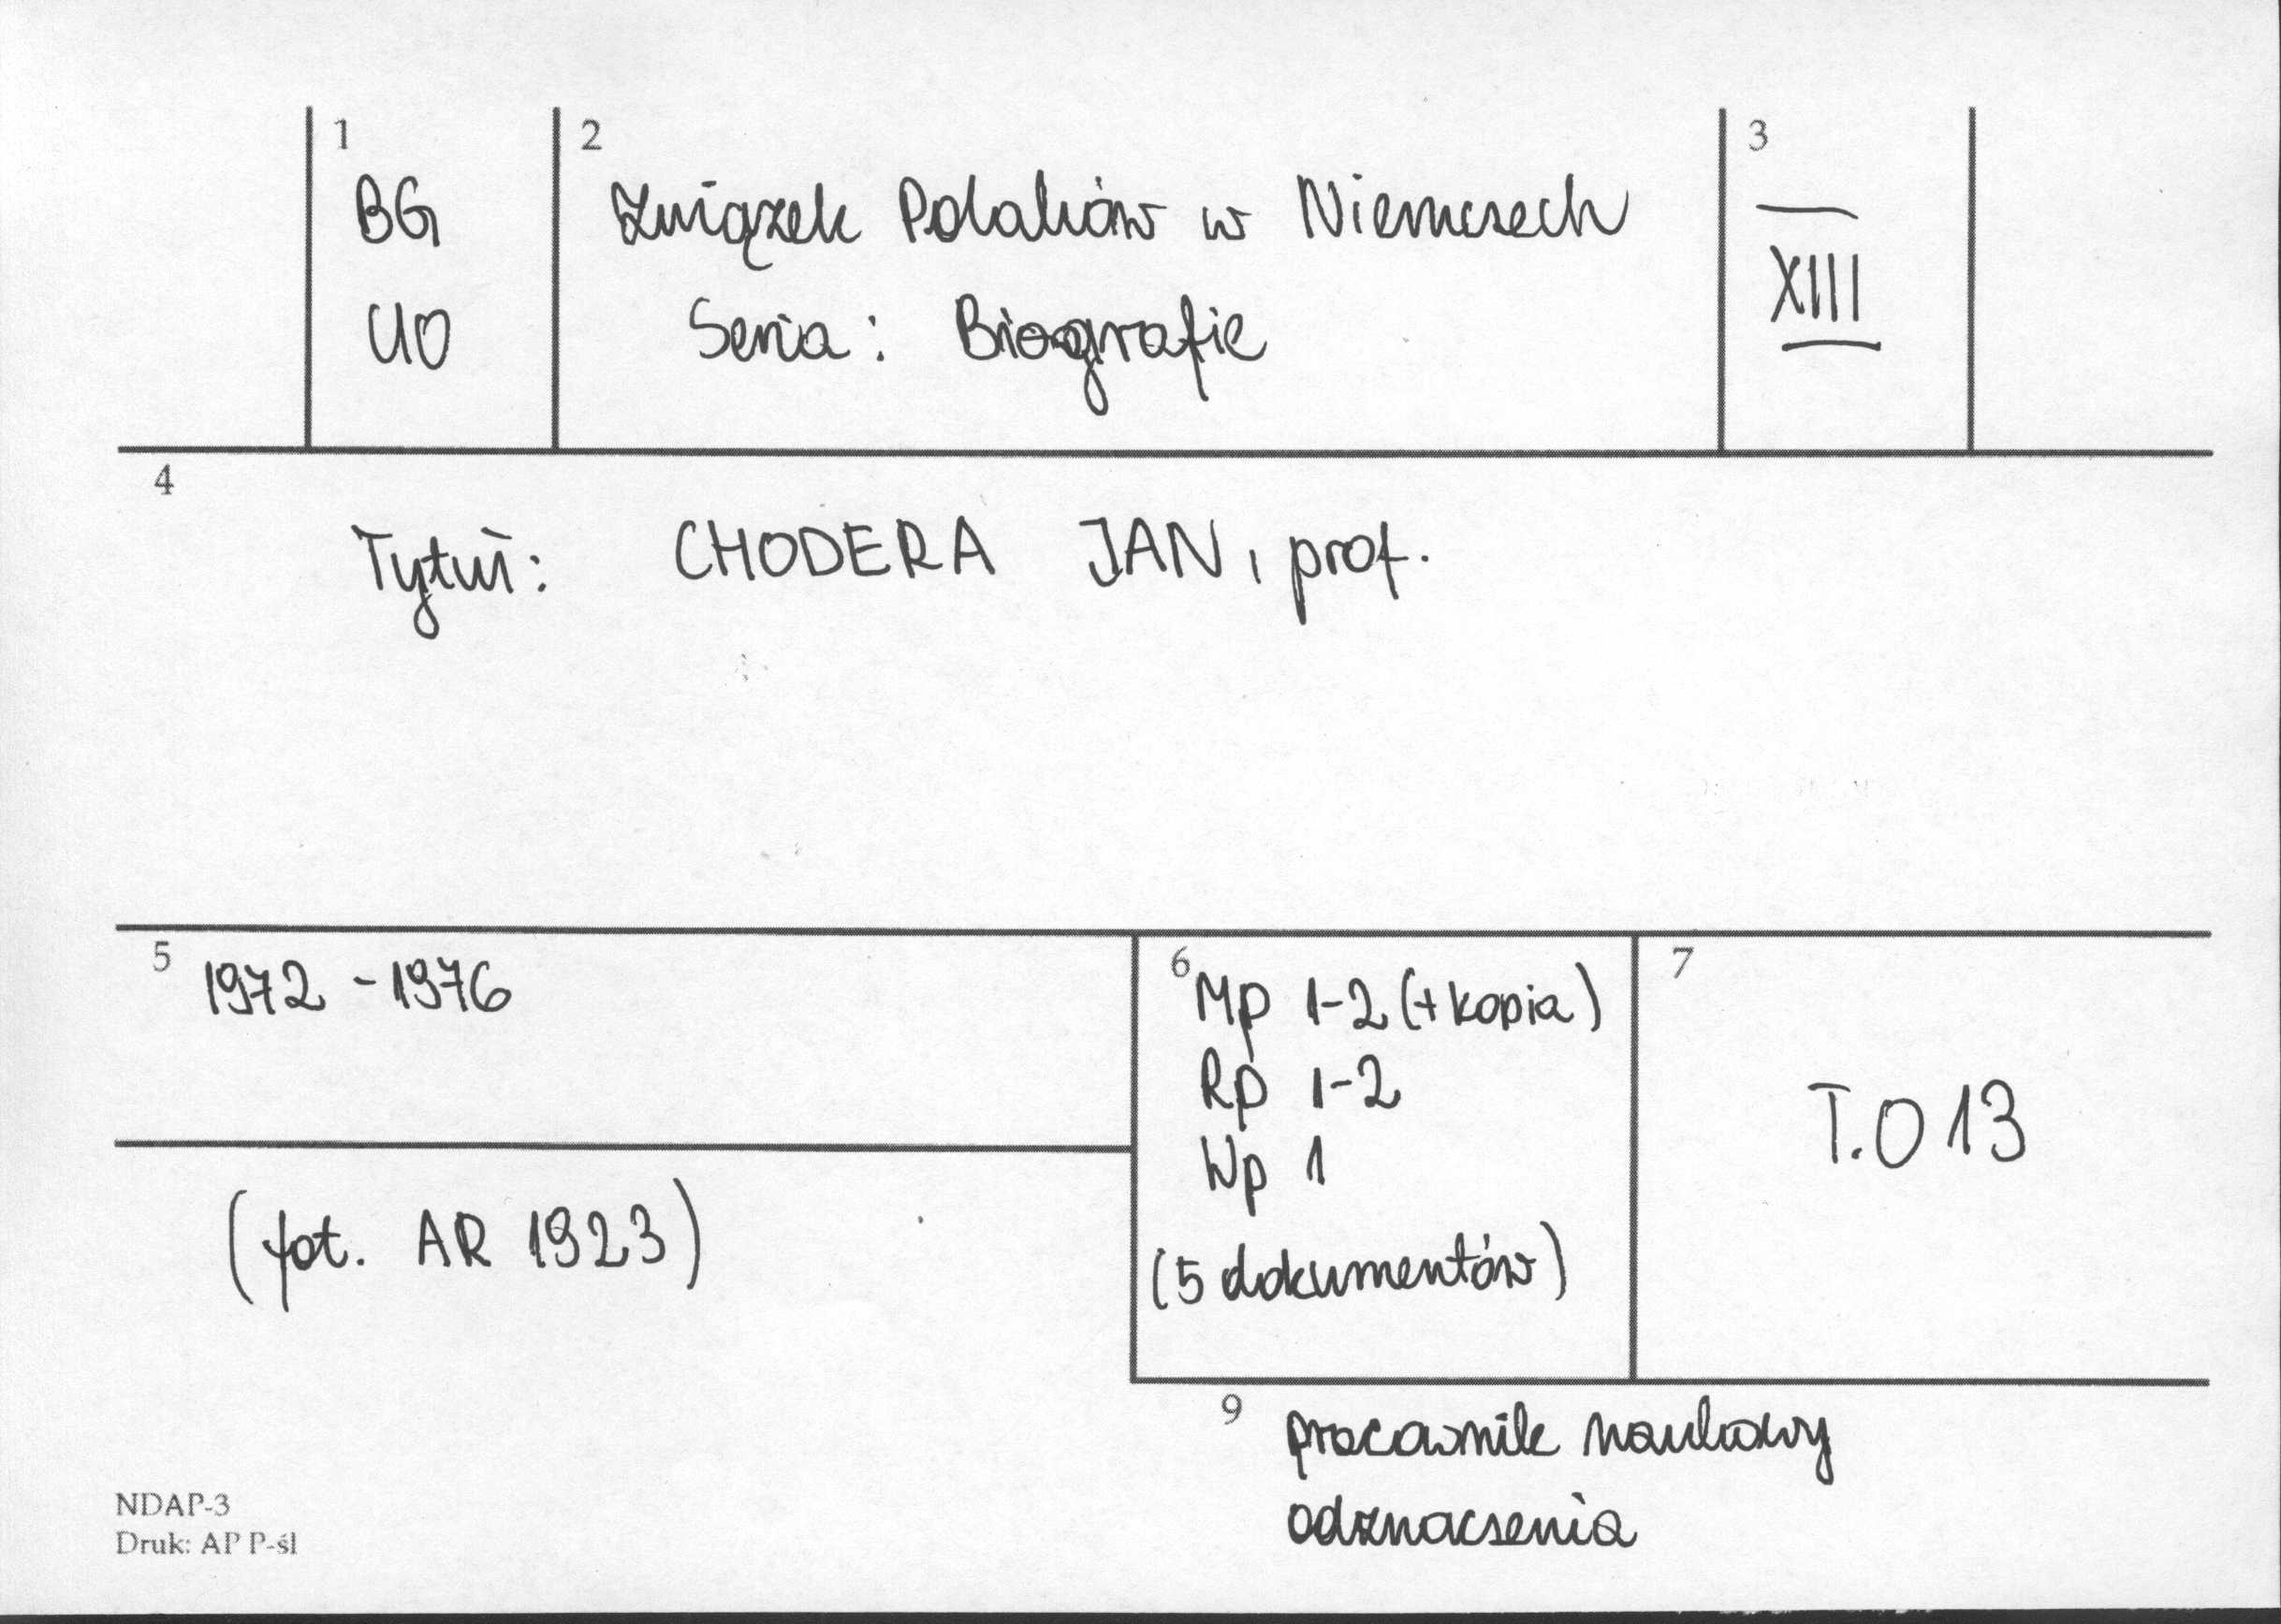 1
BG
UO
2
Związek Polaków w Niemczech
Seria: Biografie
3
XIII
4
Tytuł: CHODERA JAN, prof.
5
1972 - 1976
(fot. AR 1923)
6
Mp 1-2 (+ kopia)
Rp 1-2
Wp 1
(5 dokumentów)
7
T.O 13
9
pracownik naukowy
odznaczenia
NDAP-3
Druk: AP P-śl